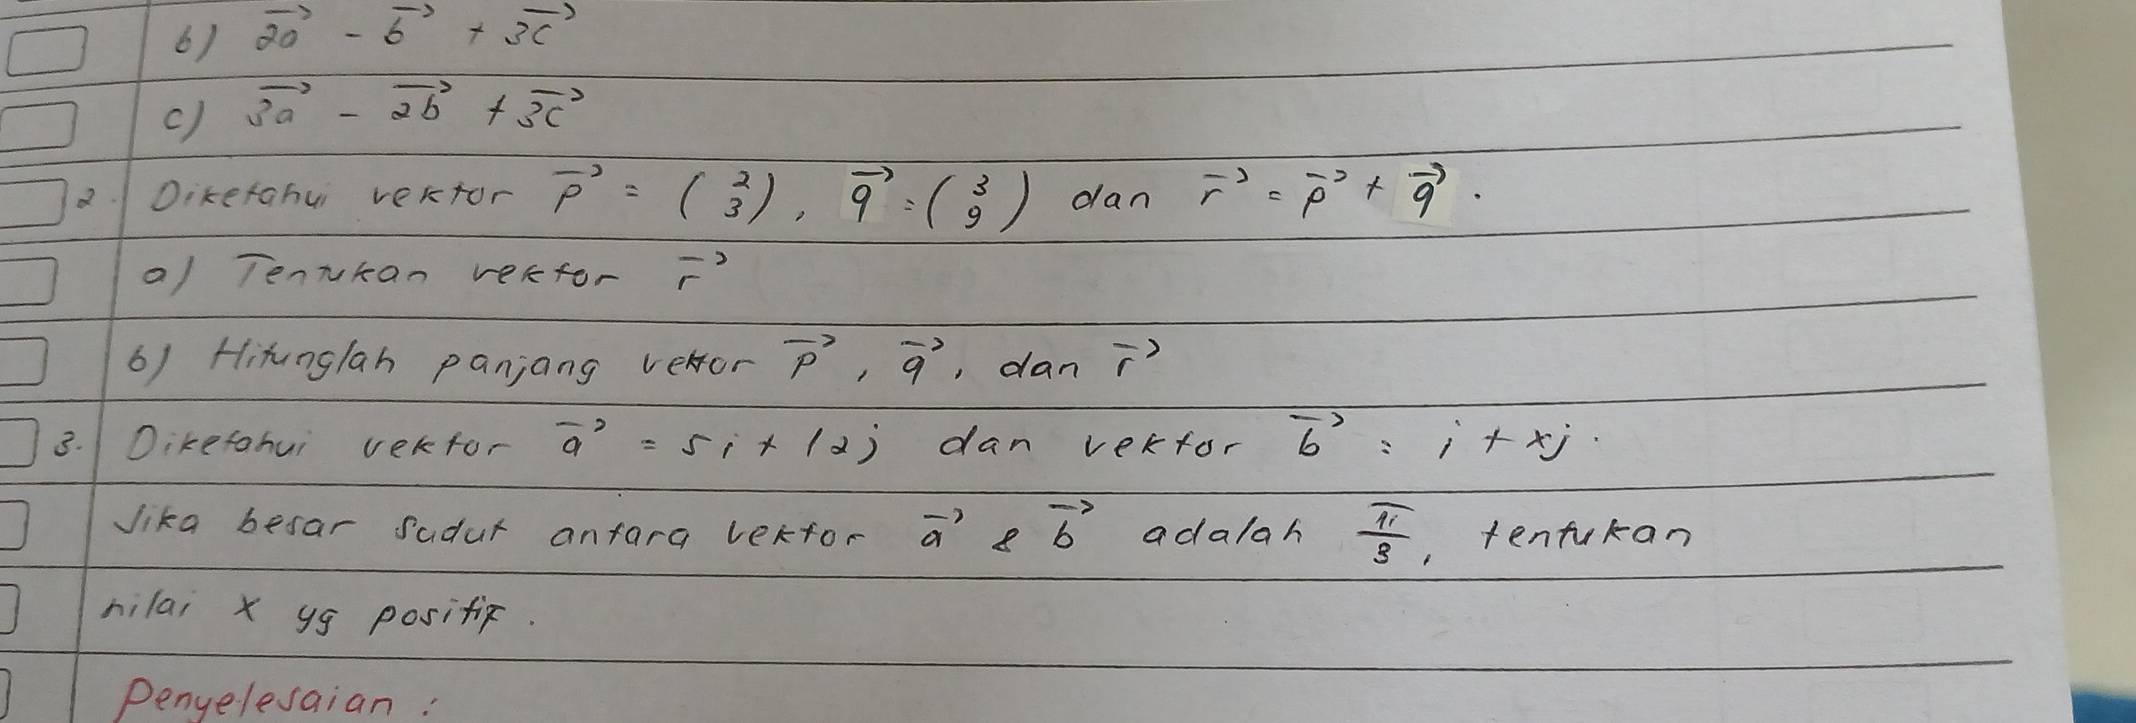 b) 2a⃗ - b⃗ + 3c⃗
c) 3a⃗ - 2b⃗ + 3c⃗
2. Diketahui vektor p⃗ = (2 3), q⃗ = (3 9) dan r⃗ = p⃗ + q⃗.
a) Tentukan vektor r⃗
b) Hitunglah panjang vektor p⃗, q⃗, dan r⃗
3. Diketahui vektor a⃗ = 5i + 12j dan vektor b⃗ = i + xj.
Jika besar sudut antara vektor a⃗ & b⃗ adalah π/3, tentukan
nilai x yg positif.
Penyelesaian: